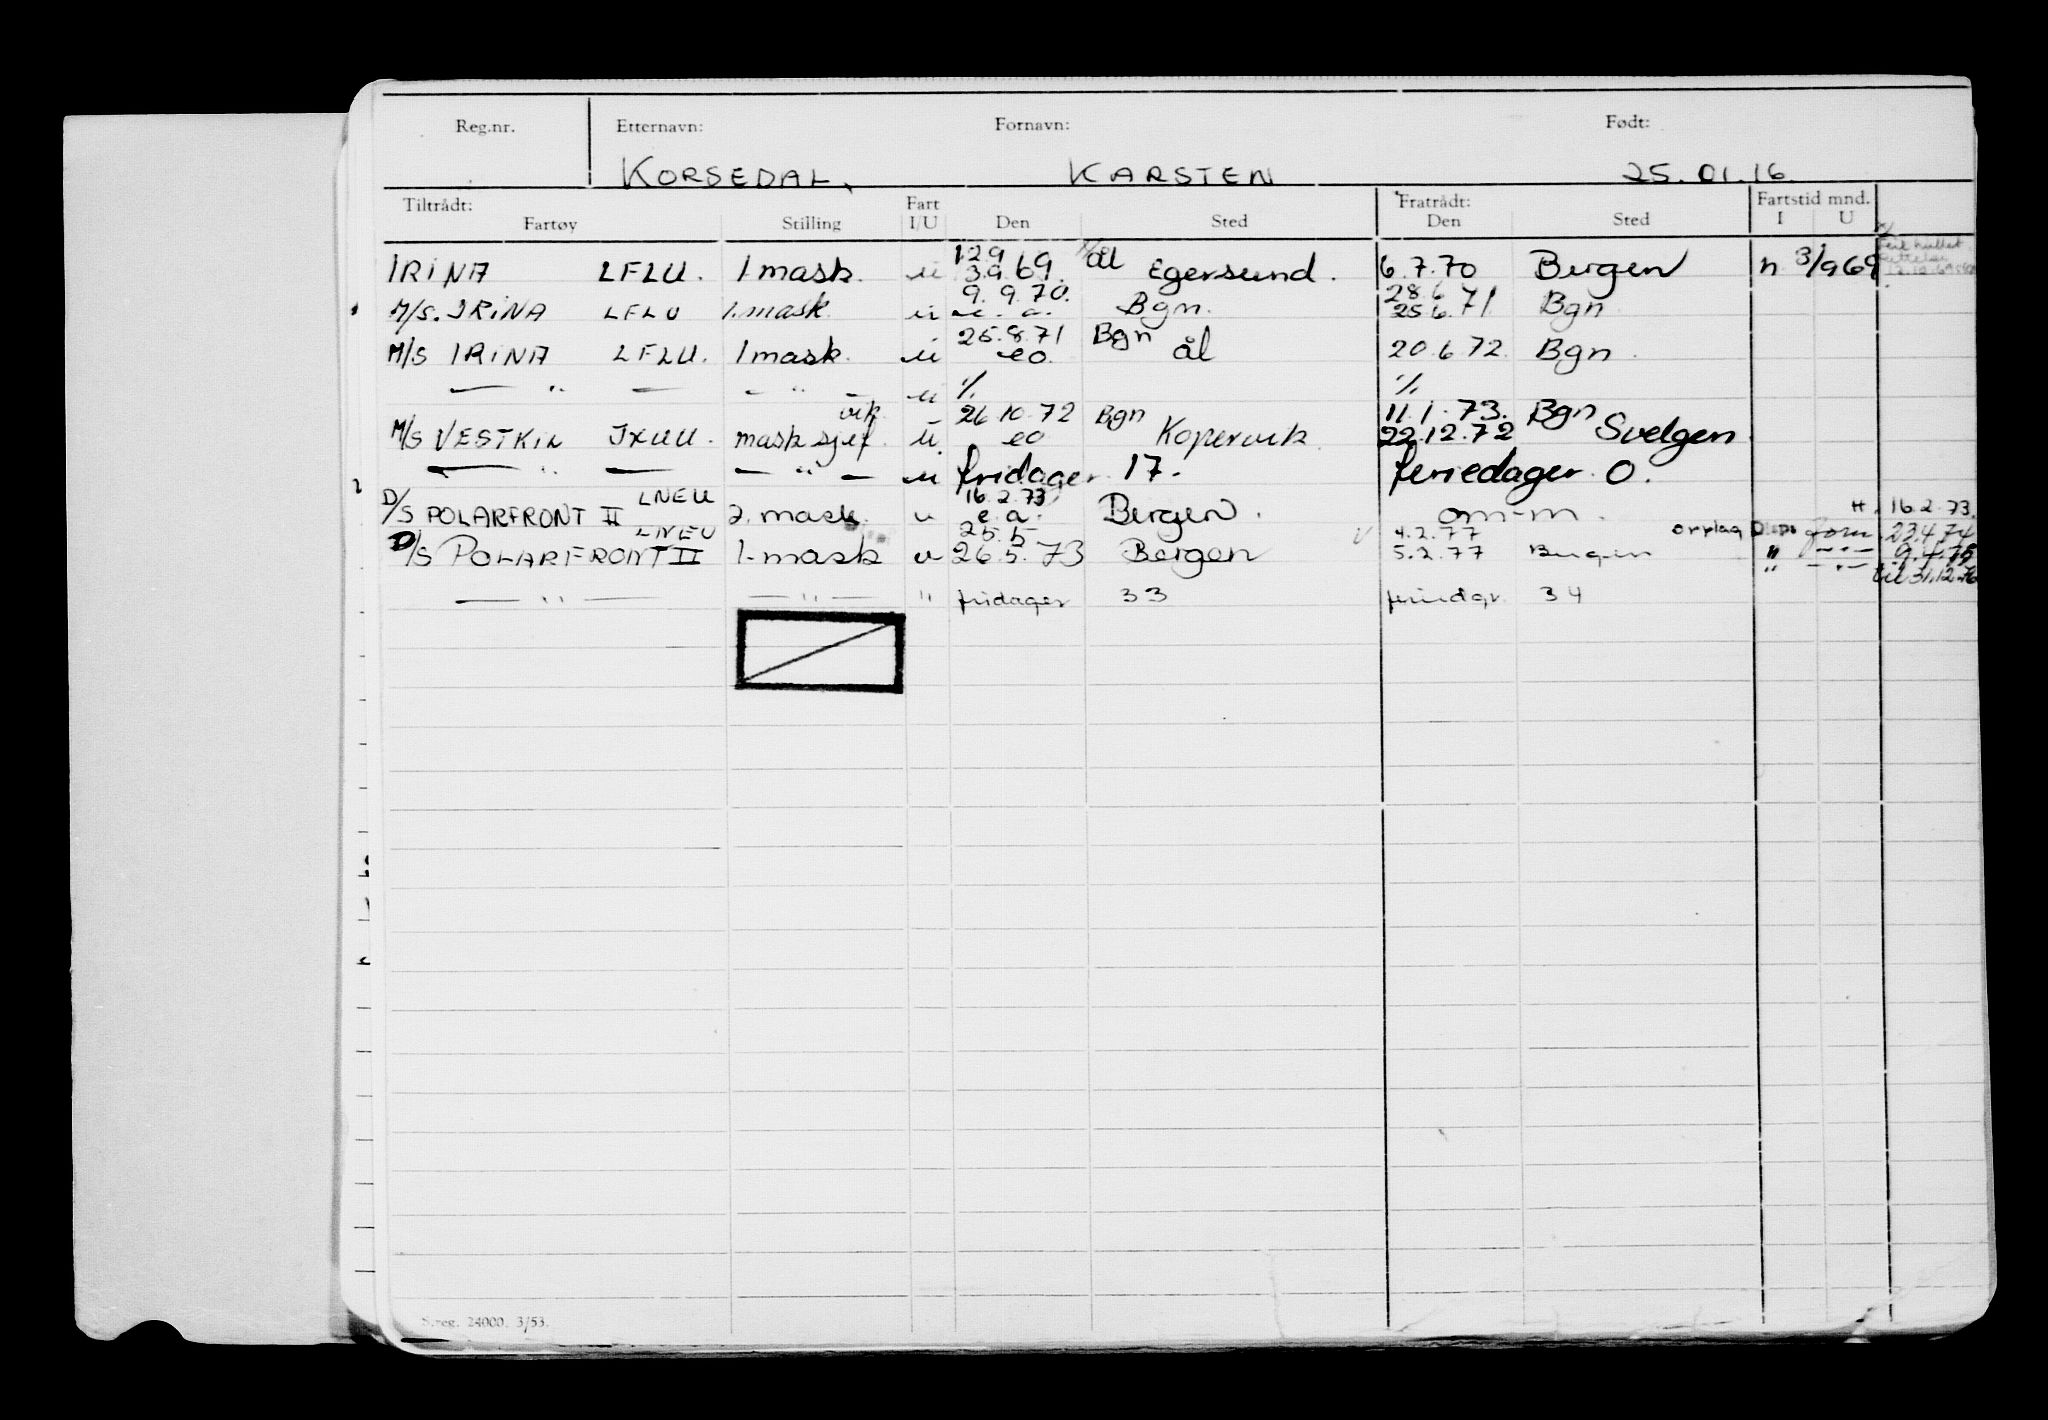 Reg.nr. Etternavn: Fornavn: Født:
KORSEDAL, KARSTEN 25.01.16.
Tiltrådt: Fart Fratrådt: Fartstid mnd.
Fartøy Stilling I/U Den Sted Den Sted I U
12.9 ål
IRINA LFLU. 1 mask. u 3.9.69. Egersund. 6.7.70 Bergen n 3/9 69
9.9.70. 28.6
M/S. IRINA LFLU 1. mask. u e. a. Bgn. 25.6.71 Bgn
25.8.71 Bgn
M/S IRINA LFLU. 1 mask. u eo. ål 20.6.72. Bgn.
— " — — " — u 1/1. 1/1.
vik. 26.10.72 Bgn 11.1.73. Bgn
M/S VESTKIN JXUU. mask sjef. u eo Kopervik. 22.12.72 Svelgen
— " — — " — u fridager 17. feriedager. 0.
LNEU 16.2.73
D/S POLARFRONT II 2. mask. u e.a. Bergen. om-m. H. 16.2.73.
LNEU 25.5 4.2.77 opplag Disp. 23.4.74
D/S POLARFRONT II 1. mask u 26.5.73 Bergen 5.2.77 Bergen " — " —
" — " — til 31.12.76
— " — — " — " fridager 33 feriedgr. 34
S.reg. 24000. 3/53.